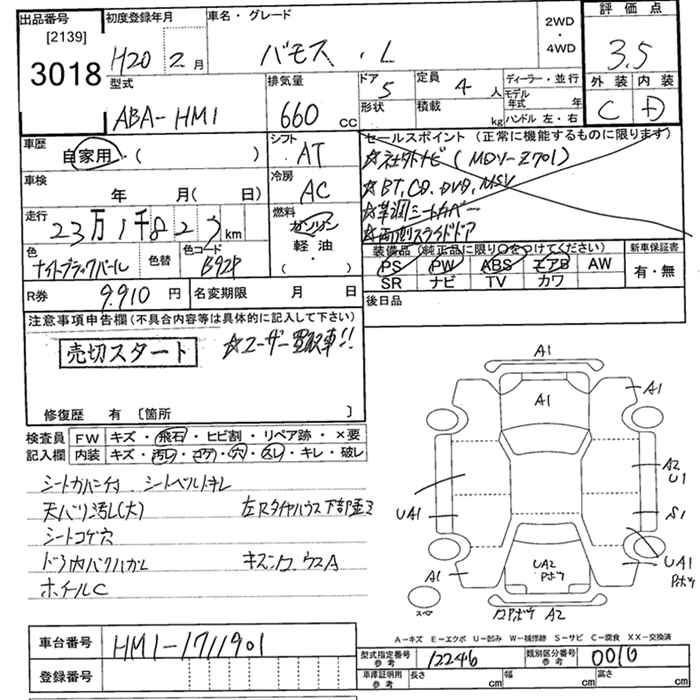 出品番号 初度登録年月 車名・グレード 2WD・4WD 評価点
[2139]
3018 H20 2月 バモス・L 3.5
型式 排気量 ドア 5 定員 4人 ディーラー・並行 外装 内装
ABA-HM1 660cc 形状 積載 kg モデル年式 年 ハンドル 左・右 C D
車歴 自家用・( ) シフト AT セールスポイント (正常に機能するものに限ります)
☆社外ナビ (MDV-Z701)
車検 年 月( 日) 冷房 AC ☆BT,CD,DVD,MSV
☆革調シートカバー
走行 23万1千823km 燃料 ガソリン 軽油 ・( ) ☆両側スライドドア
色 ナイトブラックパール 色替 色コード B92P 装備品(純正品に限り〇をつけてください) 新車保証書
PS PW ABS エアB AW 有・無
SR ナビ TV カワ
R券 9.910円 名変期限 月 日 後日品
注意事項申告欄(不具合内容等は具体的に記入して下さい)
売切スタート ☆ユーザー買取車!!
修復歴 有 [箇所 ]
検査員 FW キズ・飛石・ヒビ割・リペア跡・×要
記入欄 内装 キズ・汚レ・コゲ・穴・スレ・キレ・破レ
シートカバー付 シートベルトキレ
天バリ汚レ(大) 左Rタイヤハウス下部歪ミ
シートコゲ穴
ドラ内バリハガレ
ホイールC
A1
A1
A1
A2
U1
UA1
S1
A1
UA2
Pボツ
UA1
Pボツ
スペア
A2
A-キズ E-エクボ U-凹み W-補修跡 S-サビ C-腐食 XX-交換済
車台番号 HM1-1711901
登録番号
型式指定番号 参考 12246 類別区分番号 参考 0010
車庫証明用 参考 長さ cm 幅 cm 高さ cm